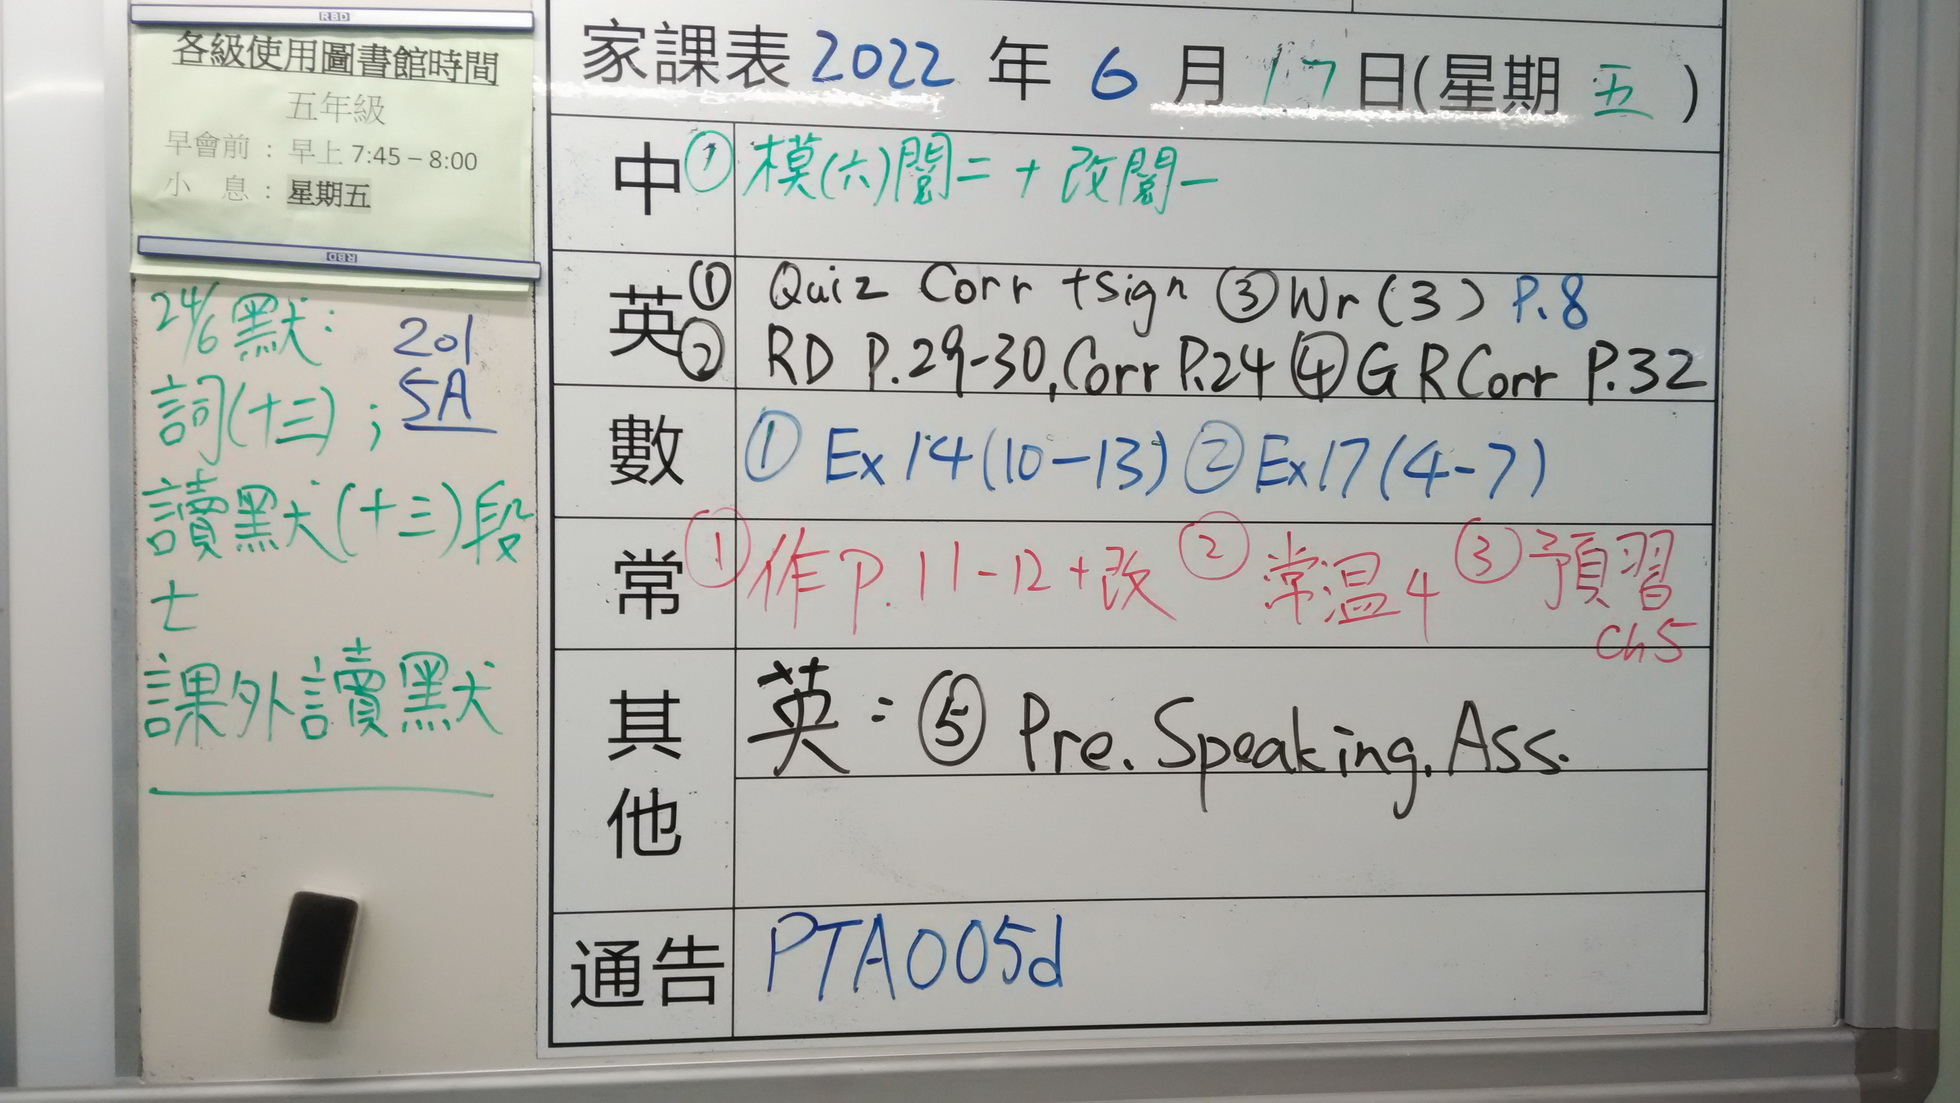 RBD
各級使用圖書館時間
五年級
早會前：早上 7:45 – 8:00
小 息：星期五
RBD
24/6 默：
201
5A
詞(十三)；
讀默(十三)段
七
課外讀默
家課表 2022 年 6 月 17 日(星期 五 )
中 ① 模(六)閱二 + 改閱一
英 ① Quiz Corr +Sign ③ Wr (3) P.8
② RD P.29-30, Corr P.24 ④ G R Corr P.32
數 ① Ex 14 (10-13) ② Ex 17 (4-7)
常 ① 作 P. 11-12 + 改 ② 常温 4 ③ 預習
Ch 5
其他 英：⑤ Pre. Speaking. Ass.
通告 PTA005d